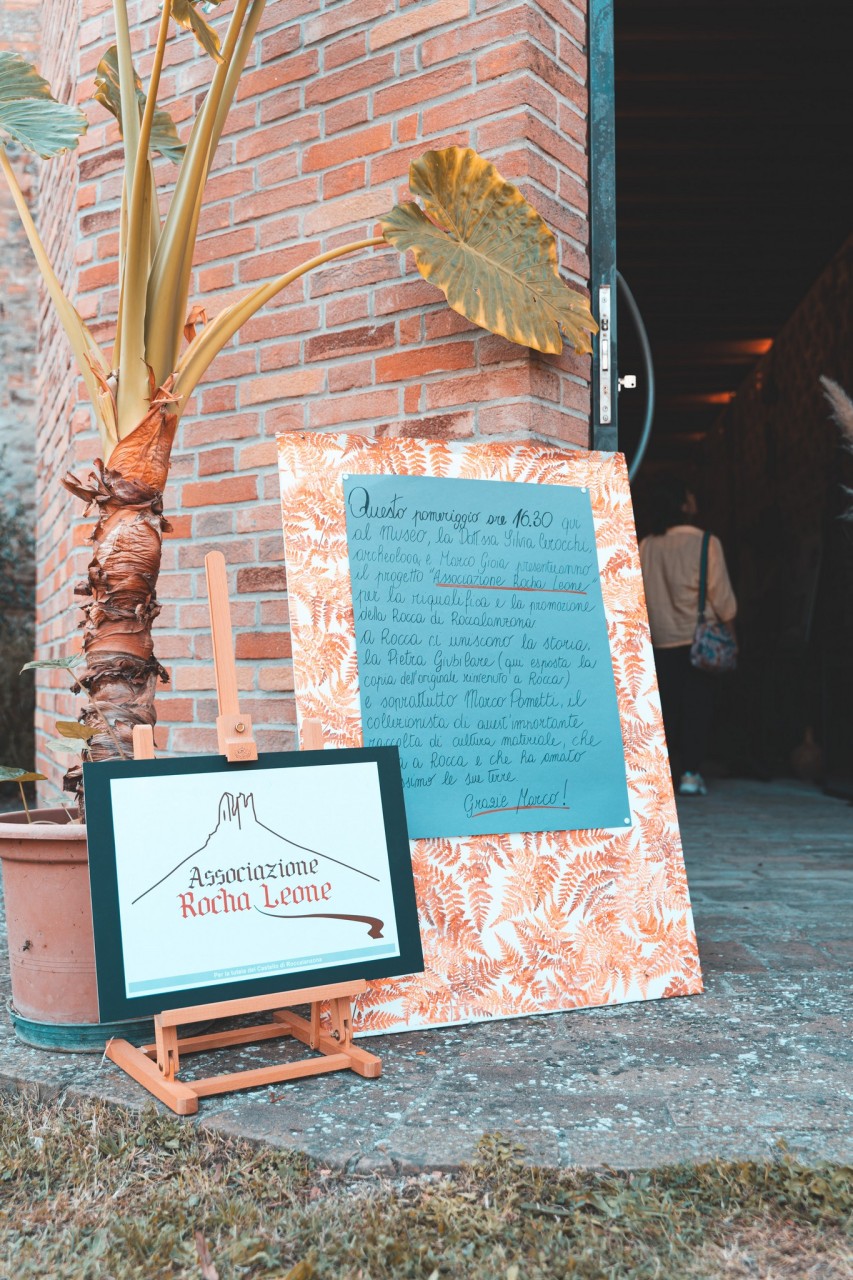 Questo pomeriggio ore 16.30 qui
al Museo, la Dott.ssa Silvia Cerocchi,
archeologa, e Marco Gioia presenteranno
il progetto "Associazione Rocha Leone"
per la riqualifica e la promozione
della Rocca di Roccalanzona
A Rocca ci uniscono la storia,
la Pietra Giubilare (qui esposta la
copia dell'originale rinvenuto a Rocca)
e soprattutto Marco Pometti, il
collezionista di quest'importante
raccolta di cultura materiale, che
a Rocca e che ha amato
le sue terre
Grazie Marco!
Associazione
Rocha Leone
Per la tutela del Castello di Roccalanzona